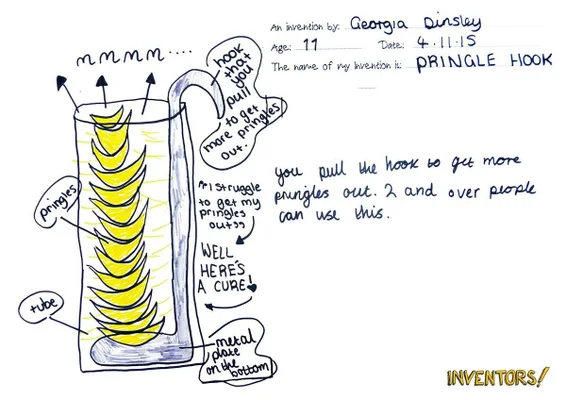 An invention by: Georgia Dinsley
Age: 11 Date: 4.11.15
The name of my invention is: PRINGLE HOOK
mmmm....
hook
that
you
pull
more to get
pringles
out.
you pull the hook to get more
pringles out. 2 and over people
can use this.
pringles
"I struggle
to get my
pringles
out"
WELL
HERE'S
A CURE!
tube
metal
plate
on the
bottom
INVENTORS!